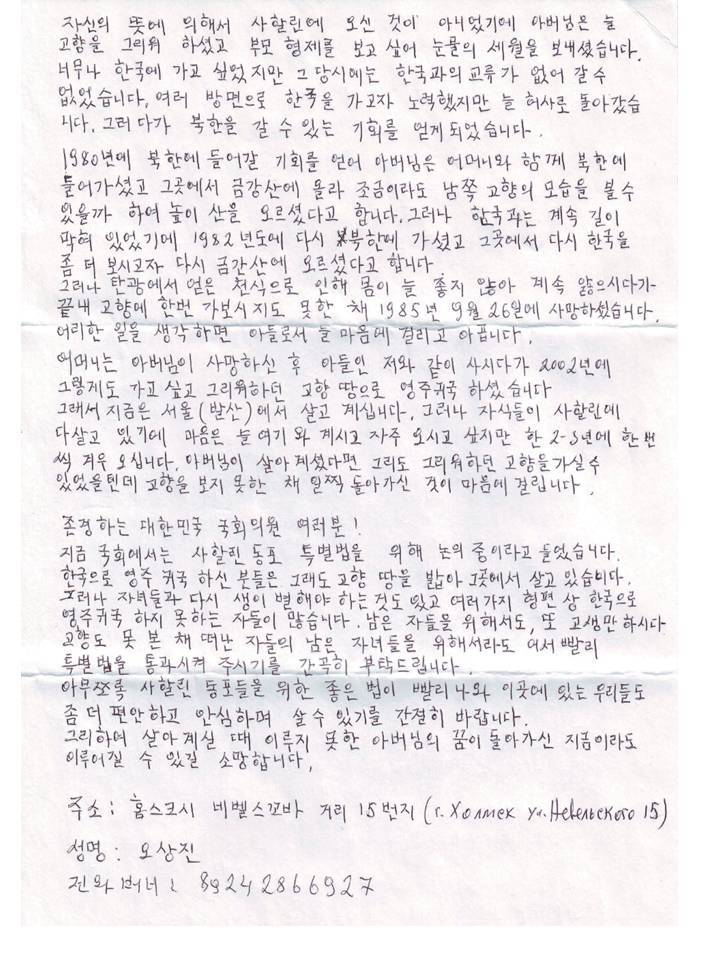 자신의 뜻에 의해서 사할린에 오신 것이 아니었기에 아버님은 늘
고향을 그리워 하셨고 부모 형제를 보고 싶어 눈물의 세월을 보내셨습니다.
너무나 한국에 가고 싶었지만 그 당시에는 한국과의 교류가 없어 갈 수
없었습니다. 여러 방면으로 한국을 가고자 노력했지만 늘 허사로 돌아갔습
니다. 그러다가 북한을 갈 수 있는 기회를 얻게 되었습니다.
1980년에 북한에 들어갈 기회를 얻어 아버님은 어머니와 함께 북한에
들어가셨고 그곳에서 금강산에 올라 조금이라도 남쪽 고향의 모습을 볼 수
있을까 하여 높이 산을 오르셨다고 합니다. 그러나 한국과는 계속 길이
막혀 있었기에 1982년도에 다시 북한에 가셨고 그곳에서 다시 한국을
좀 더 보시고자 다시 금간산에 오르셨다고 합니다
그러나 탄광에서 얻은 천식으로 인해 몸이 늘 좋지 않아 계속 앓으시다가
끝내 고향에 한번 가보시지도 못한 채 1985년 9월 26일에 사망하셨습니다.
이러한 일을 생각하면 아들로서 늘 마음에 걸리고 아픕니다.
어머니는 아버님이 사망하신 후 아들인 저와 같이 사시다가 2002년에
그렇게도 가고 싶고 그리워하던 고향 땅으로 영주귀국 하셨습니다
그래서 지금은 서울(발산)에서 살고 계십니다. 그러나 자식들이 사할린에
다 살고 있기에 마음은 늘 여기와 계시고 자주 오시고 싶지만 한 2-3년에 한번
씩 겨우 오십니다. 아버님이 살아계셨다면 그리도 그리워하던 고향을 가실 수
있었을텐데 고향을 보지 못한 채 일찍 돌아가신 것이 마음에 걸립니다.
존경하는 대한민국 국회의원 여러분!
지금 국회에서는 사할린 동포 특별법을 위해 논의 중이라고 들었습니다.
한국으로 영주 귀국 하신 분들은 그래도 고향 땅을 밟아 그곳에서 살고 있습니다.
그러나 자녀들과 다시 생이별해야 하는 것도 있고 여러가지 형편 상 한국으로
영주귀국 하지 못하는 자들이 많습니다. 남은 자들을 위해서도, 또 고생만 하시다
고향도 못 본 채 떠난 자들의 남은 자녀들을 위해서라도 어서 빨리
특별법을 통과시켜 주시기를 간곡히 부탁드립니다.
아무쪼록 사할린 동포들을 위한 좋은 법이 빨리 나와 이곳에 있는 우리들도
좀 더 편안하고 안심하며 살 수 있기를 간절히 바랍니다.
그리하여 살아 계실 때 이루지 못한 아버님의 꿈이 돌아가신 지금이라도
이루어질 수 있길 소망합니다.
주소: 홈스크시 네벨스꼬바 거리 15번지 (г. Холмск ул. Невельского 15)
성명: 오상진
전화 버너: 89242866927